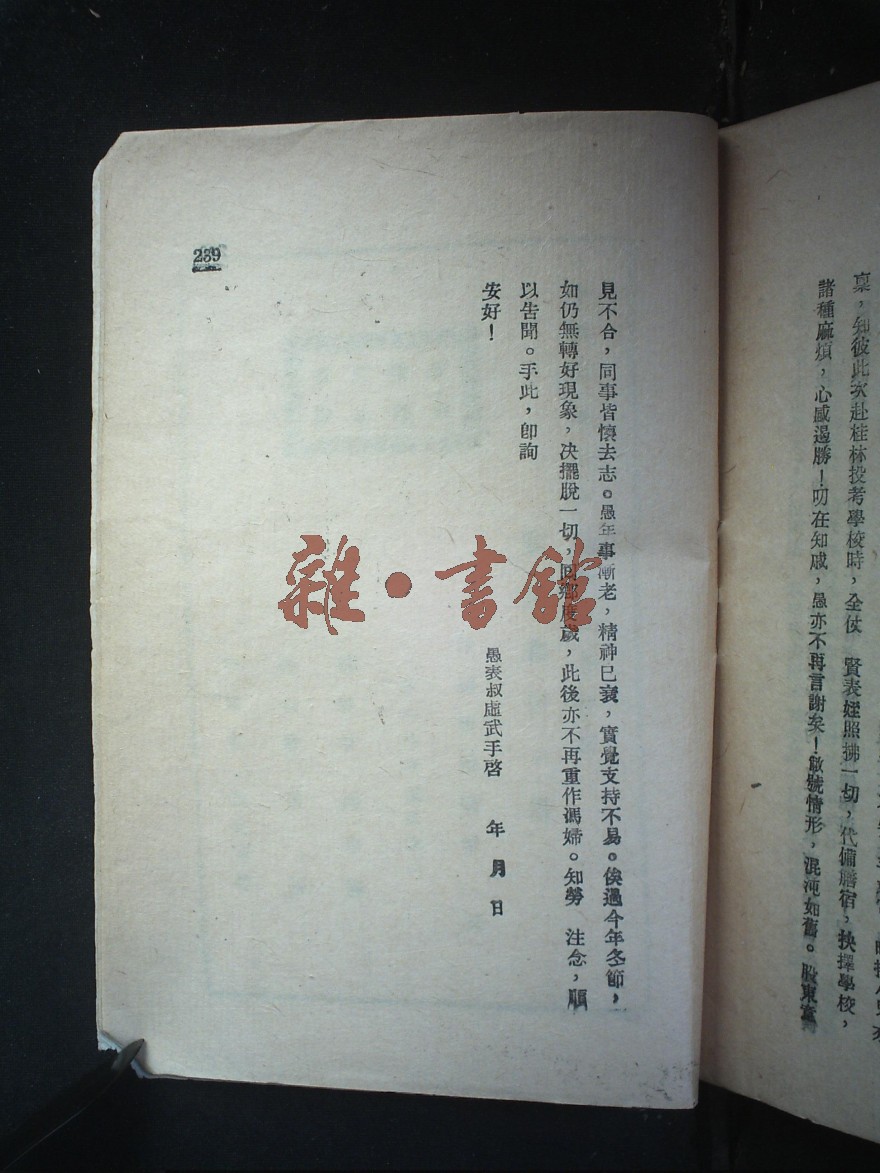 稟，知彼此次赴桂林投考學校時，全仗　賢表姪照拂一切，代備膳宿，抉擇學校，
諸種麻煩，心感曷勝！叨在知戚，愚亦不再言謝矣！敝號情形，混沌如舊。股東意
見不合，同事皆懷去志。愚年事漸老，精神已衰，實覺支持不易。俟過今年冬節，
如仍無轉好現象，决擺脫一切，回鄉度歲，此後亦不再重作馮婦。知勞　注念，順
以告聞。手此，卽詢
安好！
愚表叔虛武手啓　年　月　日
239
雜·書館